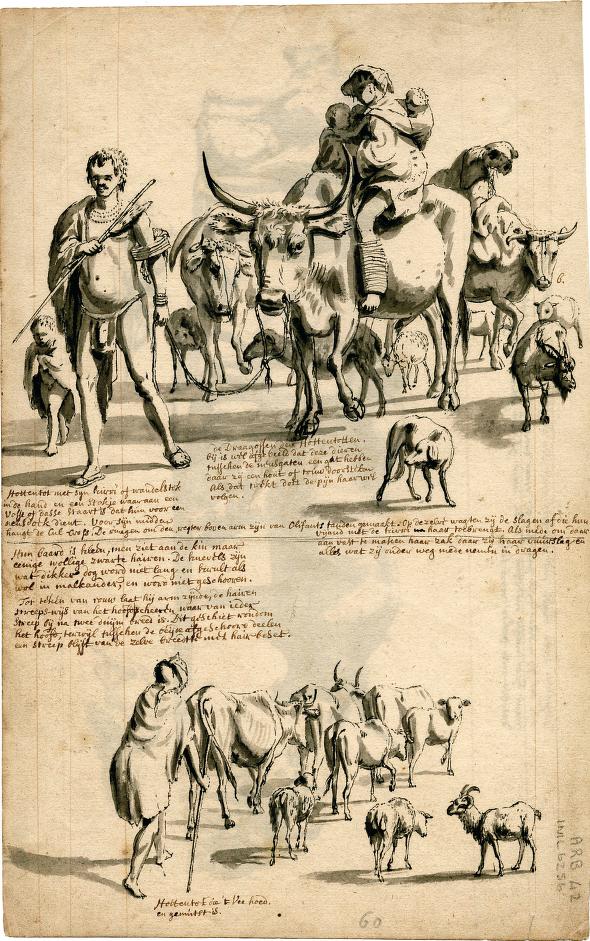 de Draagossen der Hottentotten,
bij is ook afgebeeld dat deze dieren
tusschen de neusgaten een gat hebben
daar zij een hout of touw doorsteken
Als dat trekt dott de pijn haar wel
volgen.
Hottentot met syn kirri of wandelstok
in de hand en een stokje waar aan een
Vosse of Dasse staart is dat hun voor een
neusdoek dient. Voor syn midden
hangt de Cul Cross. De ringen om den regter boven arm zijn van Olifants tanden gemaakt. Op dezelve vangen zij de slagen af die hun
vijand met de kirri haar toebrengt. Als mede om daar
aan vast te maken haar zak daar zij haar vuurslag en
alles wat zij onder weg mede nemen in dragen.
Hun baard is klein, men ziet aan de kin maar
eenige wollige zwarte hairen. De knevels zijn
wat dikker dog word met lang en krult als
wol in malkander, en word niet geschooren.
Tot teken van rouw laat hij arm zijnde, de hairen
streeps-wijs van het hooft scheeren waar van ieder
streep bij na twee duijm breet is. Dit geschiet rondom
het hooft, terwijl tusschen de geschoore deelen
een streep blijft van de zelve breette met hair beset.
6.
Hottentot die 't Vee hoed.
en gemutst is.
60
ARB 42
INV. 6256